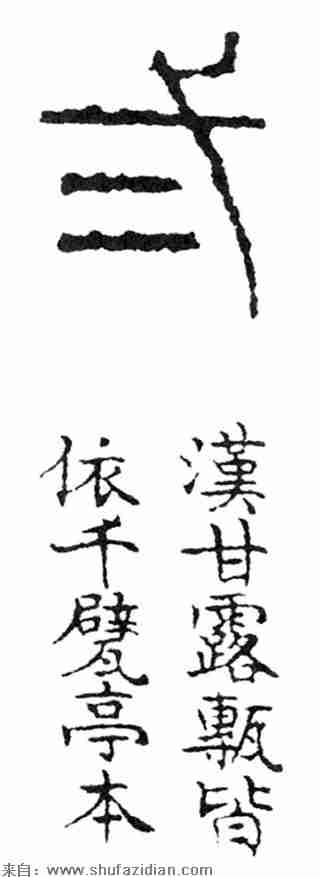 弍
漢甘露甎皆
依千甓亭本
来自：www.shufazidian.com